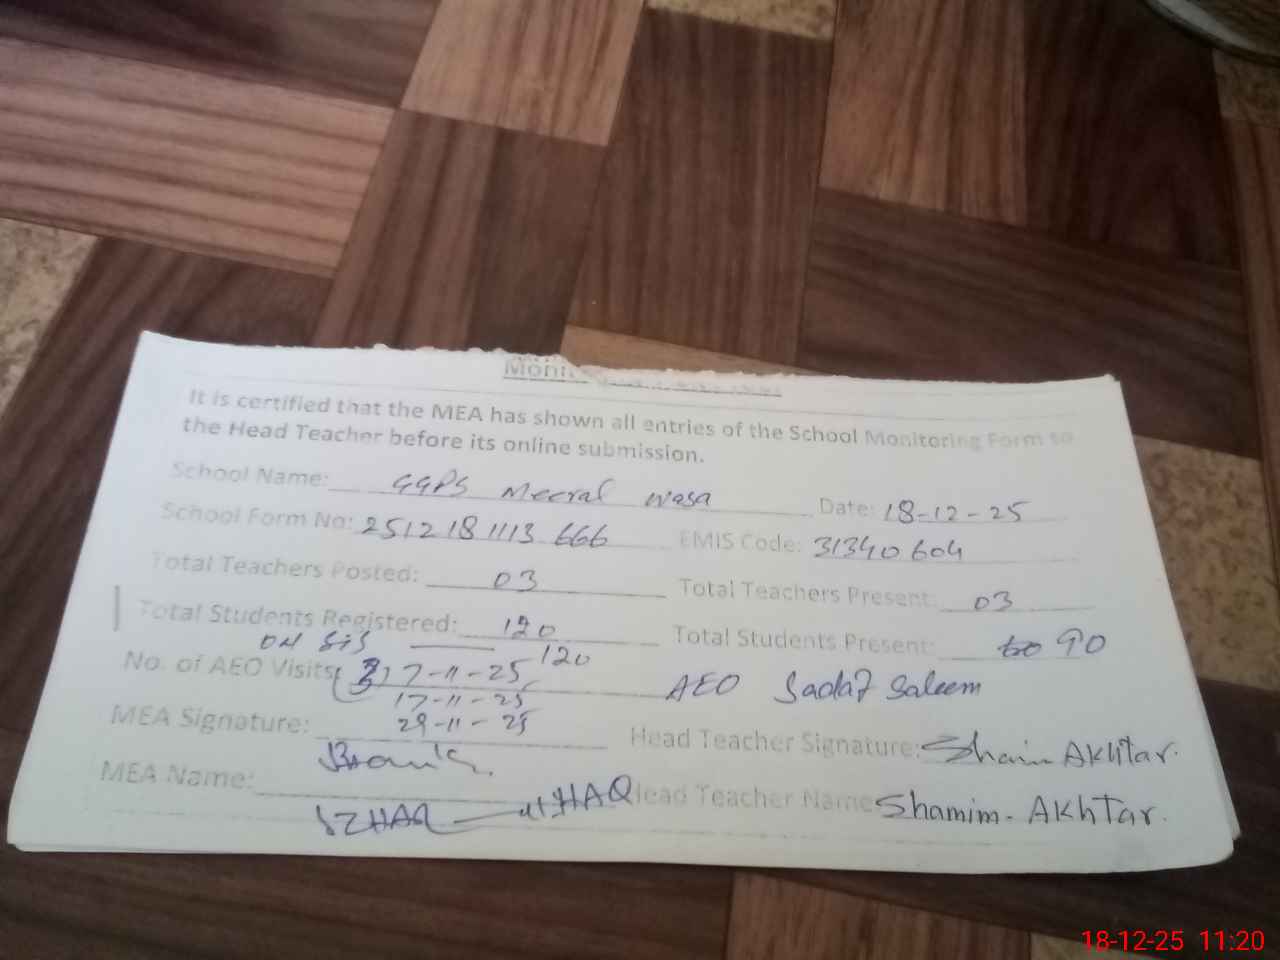 It is certified that the MEA has shown all entries of the School Monitoring Form to
the Head Teacher before its online submission.
School Name: GGPS Meeral wasa Date: 18-12-25
School Form No: 2512181113666 EMIS Code: 31340604
Total Teachers Posted: 03 Total Teachers Present: 03
Total Students Registered: 120 Total Students Present: 90
ON SIS 120
No. of AEO Visits (3) 7-11-25 AEO Sadaf Saleem
17-11-25
MEA Signature: 29-11-25 Head Teacher Signature: Akhtar.
MEA Name: HAQ Head Teacher Name Shamim. Akhtar.
18-12-25 11:20